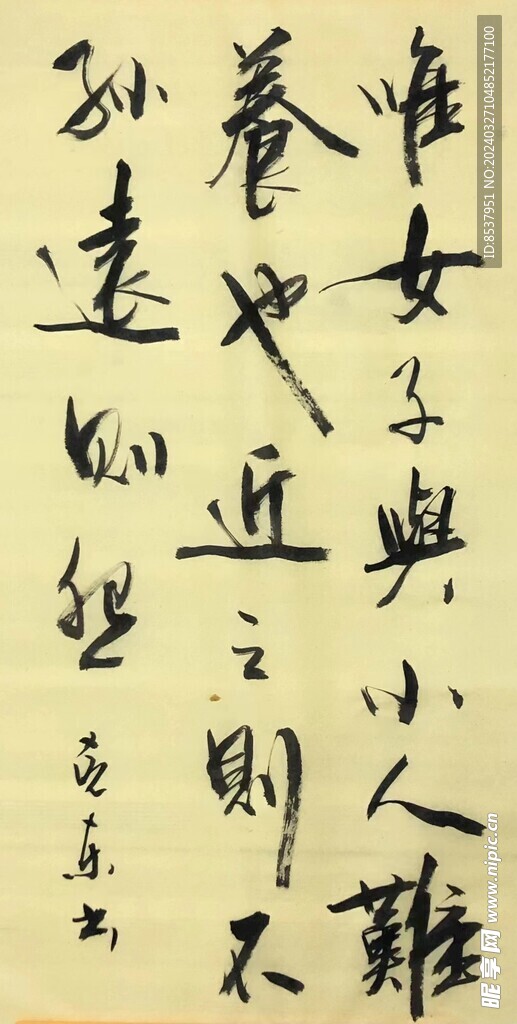 唯女子與小人難
養也近之則不
孫遠則怨
克东书
ID:8537951 NO:20240327104852177100
昵享网 www.nipic.cn